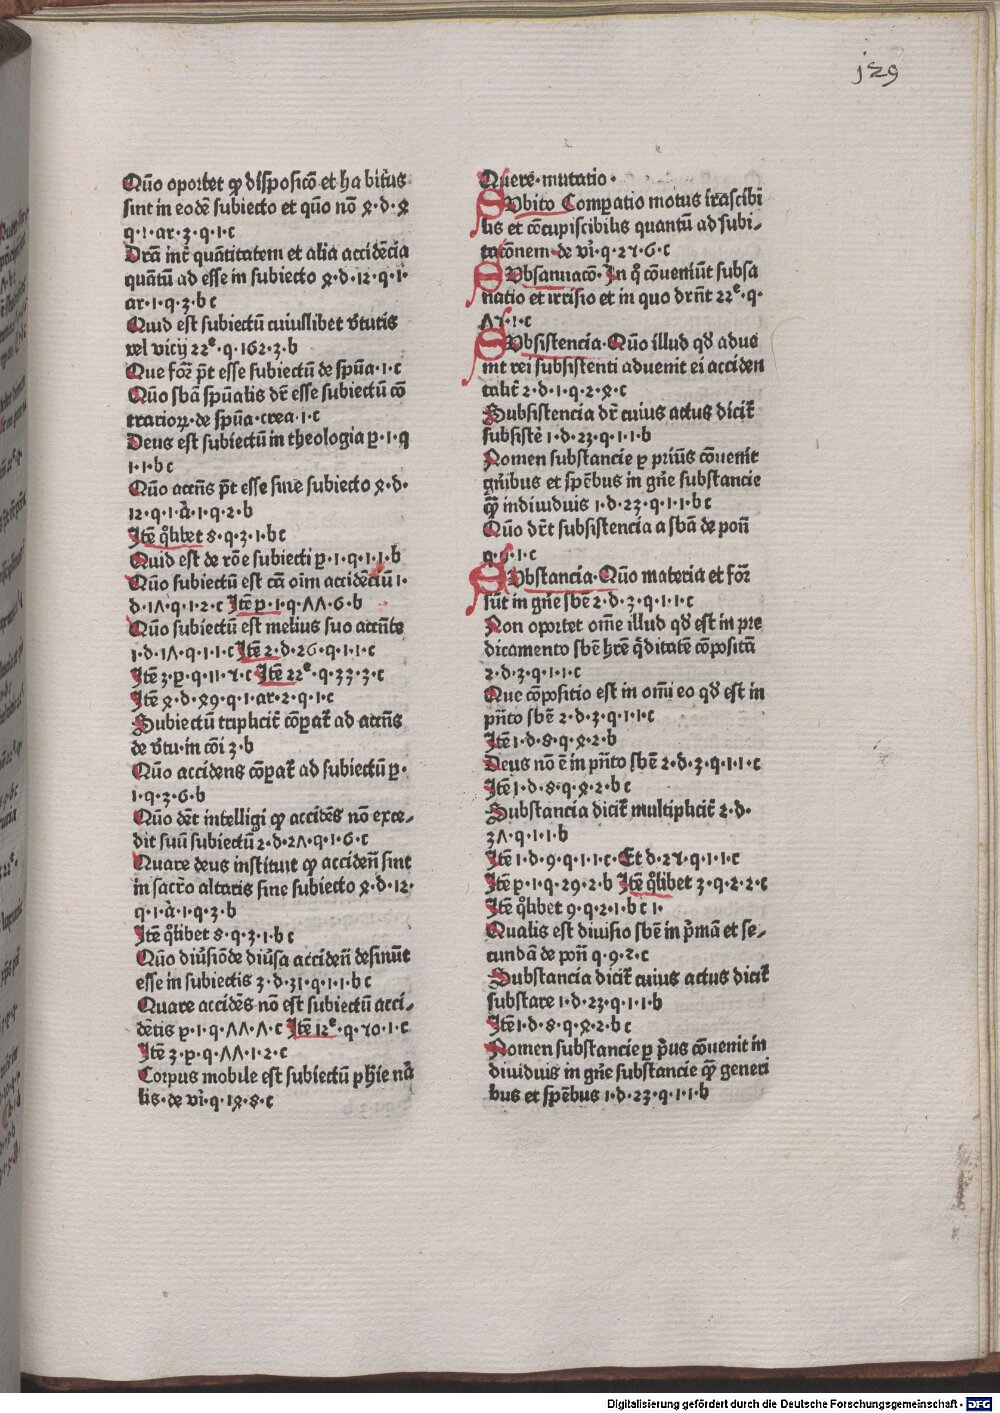 129
Quō oportet ꝙ dispositō et habitus
sint in eodē subiecto et quō nō 4·d·4
q·1·ar·3·q·1·c
Dr̄am int̄ quātitatem et alia accidētia
quātū ad esse in subiecto 4·d·12·q·1·
ar·1·q·3·b c
Quid est subiectū cuiuslibet v̄tutis
vel vicij 22ᵉ·q·162·3·b
Que for̄ p̄t esse subiectū de sp̄ua·1·c
Quō sbā sp̄ualis dr̄ esse subiectū cō
trarioꝝ·de sp̄ua·crea·1·c
Deus est subiectū in theologia p·1·q
1·1·b c
Quō accn̄s p̄t esse sine subiecto 4·d·
12·q·1·ā·1·q·2·b
Itē qͦlibet 8·q·3·1·b c
Quid est de rōe subiecti p·1·q·1·1·b
Quō subiectū est cā oīm accidētiū 1·
d·17·q·1·2·c Itē p·1·q·77·6·b
Quō subiectū est melius suo accn̄te
1·d·17·q·1·1·c Itē 2·d·26·q·1·1·c
Itē 3·p·q·11·5·c Itē 22ᵉ·q·33·3·c
Itē 4·d·49·q·1·ar·2·q·1·c
Subiectū triplicit̄ cōpat̄ ad accn̄s
de v̄tu·in cōi 3·b
Quō accidens cōpat̄ ad subiectū p·
1·q·3·6·b
Quō det̄ intelligi ꝙ accidēs nō exce-
dit suū subiectū 2·d·27·q·1·6·c
Quare deus instituit ꝙ acciden̄ sint
in sacr̄o altaris sine subiecto 4·d·12·
q·1·ā·1·q·3·b
Itē qͦlibet 8·q·3·1·b c
Quō diūsiōde diūsa acciden̄ desinūt
esse in subiectis 3·d·31·q·1·1·b c
Quare accidēs nō est subiectū acci-
dētis p·1·q·77·7·c Itē 12ᵉ·q·50·1·c
Itē 3·p·q·77·1·2·c
Corpus mobile est subiectū phīe nā
lis·de vī·q·14·8·c
Quere·mutatio·
SVbito Compatio motus irascibi
lis et cōcupiscibilis quantū ad subi-
tatōnem·de vī·q·25·6·c
SVbsannatō·In qͦ cōueniūt subsa
natio et irrisio et in quo drn̄t 22ᵉ·q·
75·1·c
SVbsistencia·Quō illud qd̄ adue
nit rei subsistenti aduenit ei acciden
talit̄ 2·d·1·q·2·4·c
Subsistencia dr̄ cuius actus dicit̄
subsistē 1·d·23·q·1·1·b
Nomen substancie p prius cōuenit
gn̄ibus et spēbus in gn̄e substancie
ꝙ̄ indiuiduis 1·d·23·q·1·1·b c
Quō drt̄ subsistencia a sbā de pon̄
q·9·1·c
SVbstancia·Quō materia et for̄
sūt in gn̄e sbē 2·d·3·q·1·1·c
Non oportet om̄e illud qd̄ est in pre
dicamento sbē hr̄e qͥditatē cōpositā
2·d·3·q·1·1·c
Que cōpositio est in om̄i eo qd̄ est in
pn̄to sbē 2·d·3·q·1·1·c
Itē 1·d·8·q·4·2·b
Deus nō ē in pn̄to sbē 2·d·3·q·1·1·c
Itē 1·d·8·q·4·2·b c
Substancia dicit̄ multiplicit̄ 2·d·
37·q·1·1·b
Itē 1·d·9·q·1·1·c·Et d·25·q·1·1·c
Itē p·1·q·29·2·b Itē qͦlibet 3·q·2·2·c
Itē qͦlibet 9·q·2·1·b c 1·
Qualis est diuisio sbē in pͥmā et se-
cundā de pon̄ q·9·2·c
Substancia dicit̄ cuius actus dicit̄
substare 1·d·23·q·1·1·b
Itē 1·d·8·q·4·2·b c
Nomen substancie p pͥus cōuenit in
diuiduis in gn̄e substancie ꝙ̄ generi
bus et spēbus 1·d·23·q·1·1·b
Digitalisierung gefördert durch die Deutsche Forschungsgemeinschaft - DFG